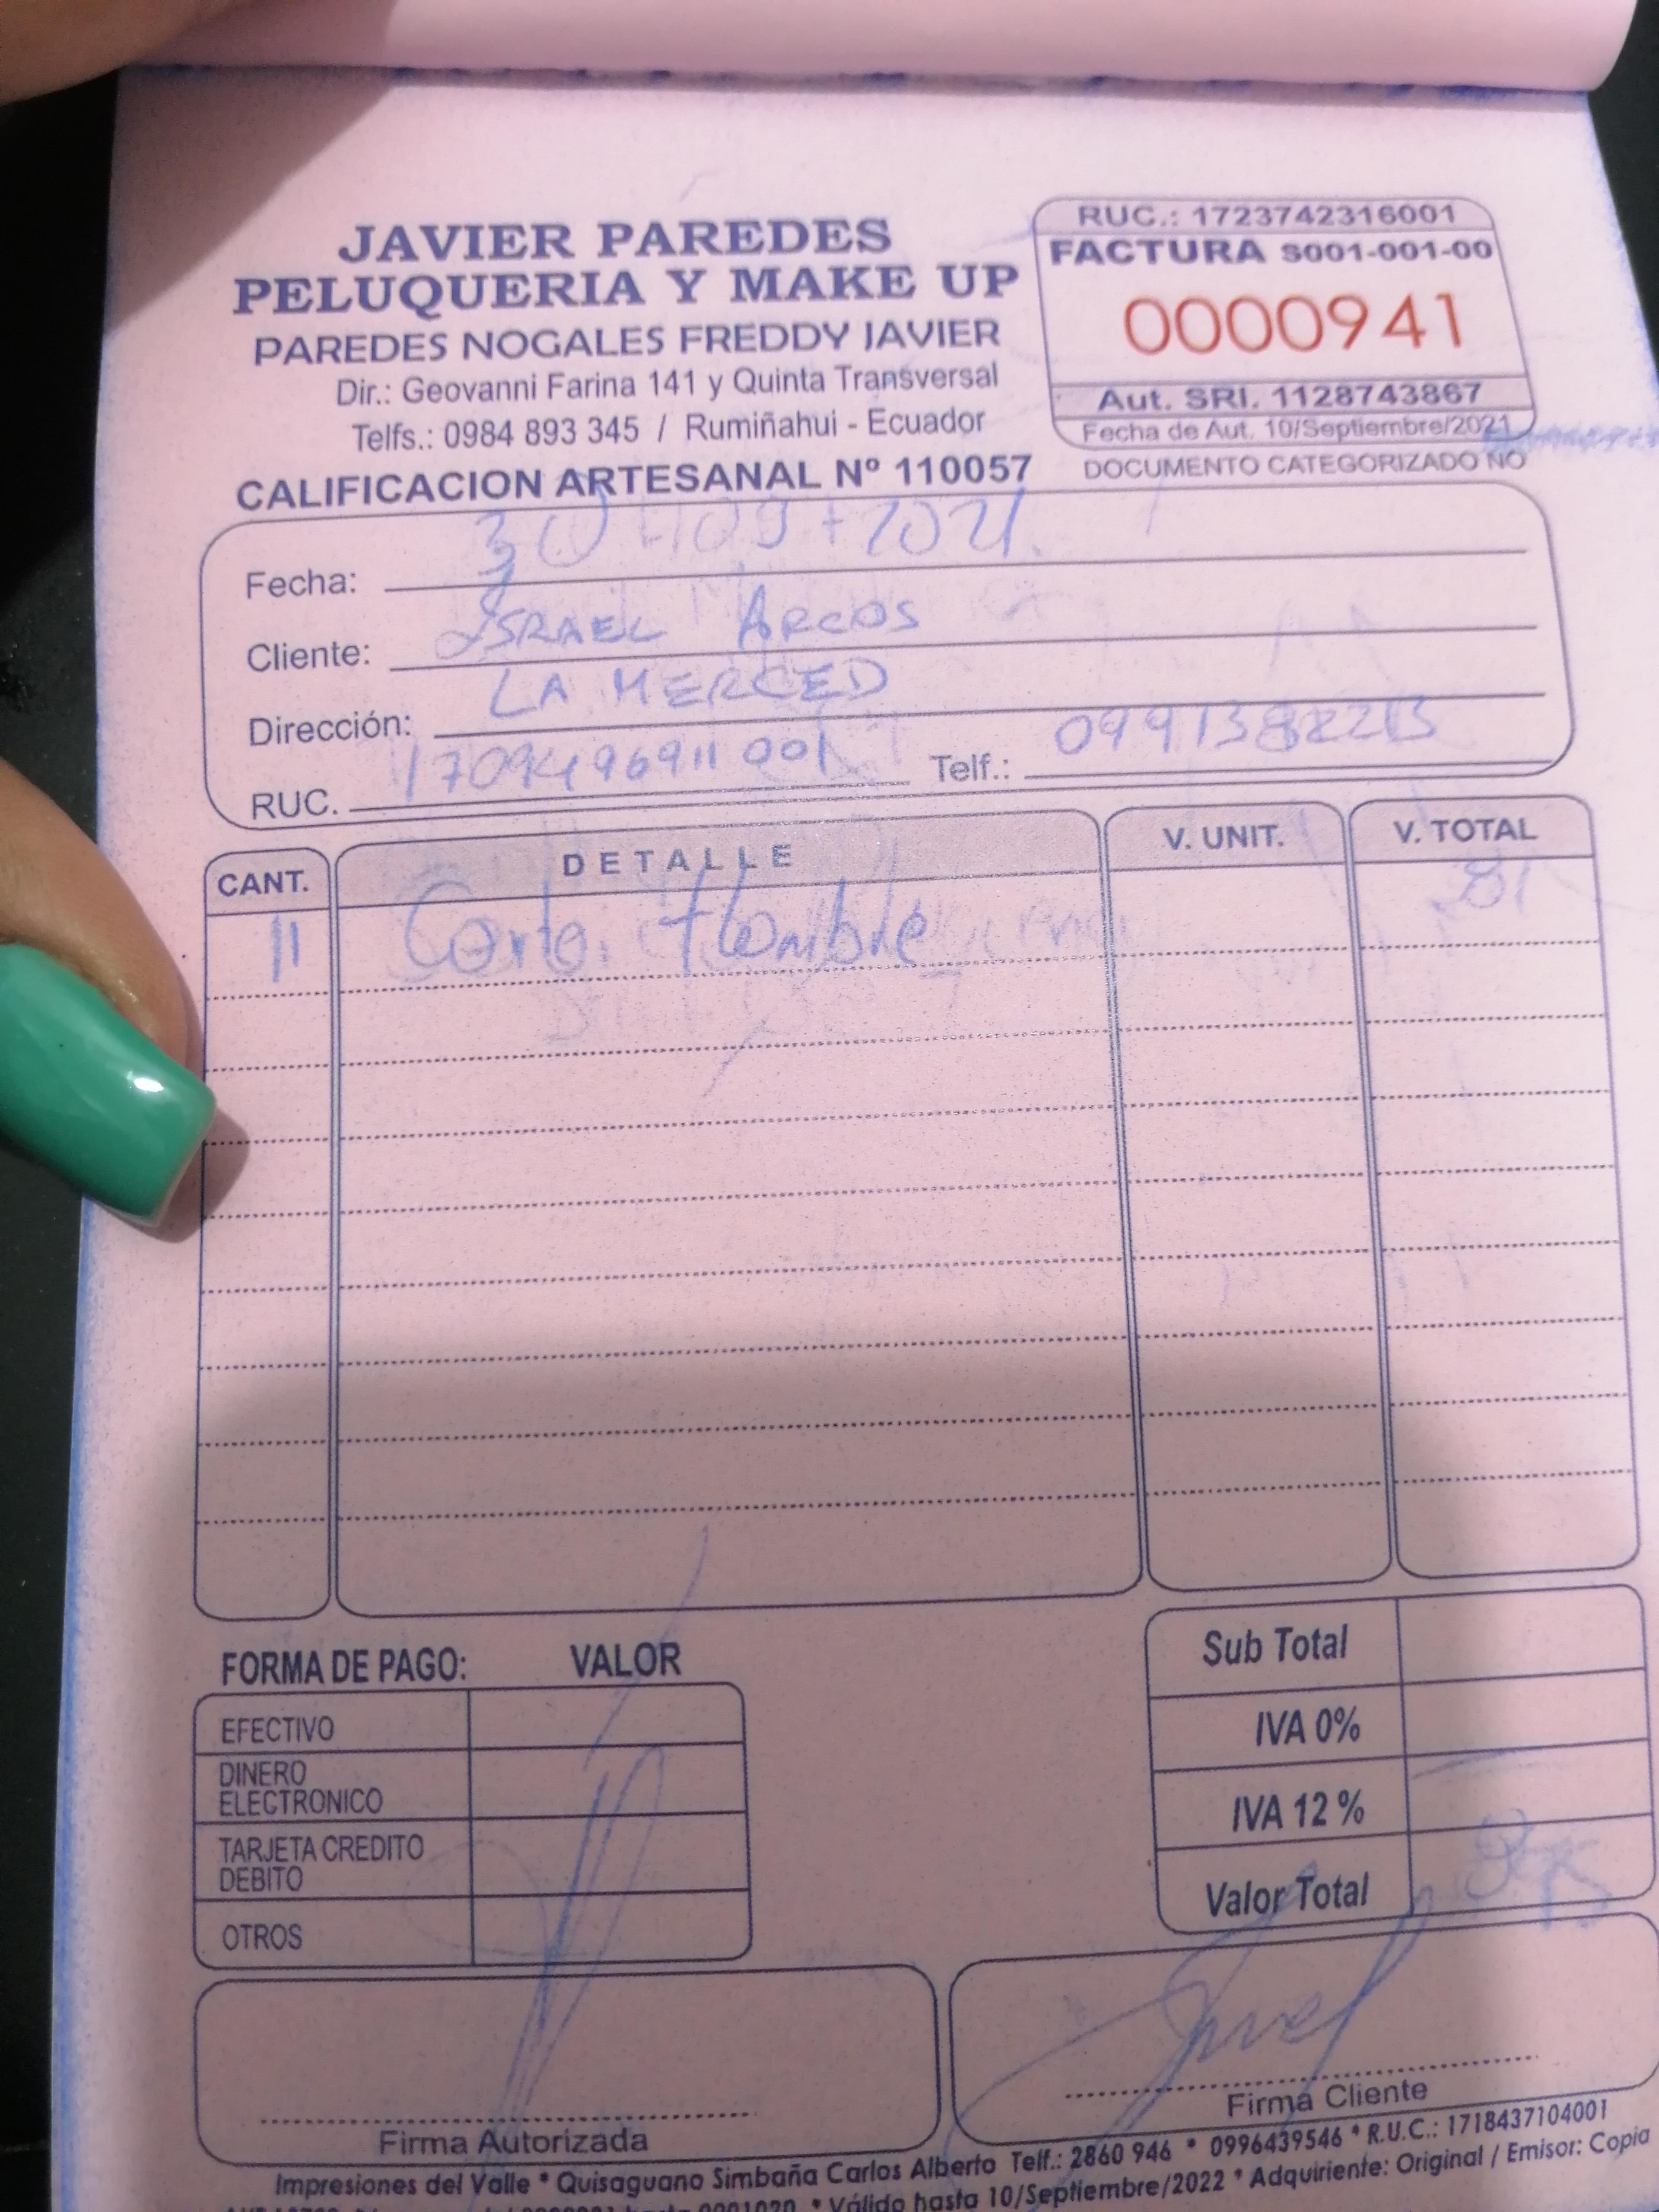 JAVIER PAREDES
PELUQUERIA Y MAKE UP
PAREDES NOGALES FREDDY JAVIER
Dir.: Geovanni Farina 141 y Quinta Transversal
Telfs.: 0984 893 345 / Rumiñahui - Ecuador
CALIFICACION ARTESANAL Nº 110057
RUC.: 1723742316001
FACTURA S001-001-00
0000941
Aut. SRI. 1128743867
Fecha de Aut. 10/Septiembre/2021
DOCUMENTO CATEGORIZADO NO
Fecha: 30 09 2021
Cliente: ISRAEL ARCOS
Dirección: LA MERCED
RUC. Telf.:
CANT. DETALLE V. UNIT. V. TOTAL
Corte Hombre
FORMA DE PAGO: VALOR
EFECTIVO
DINERO ELECTRONICO
TARJETA CREDITO DEBITO
OTROS
Sub Total
IVA 0%
IVA 12 %
Valor Total
Firma Autorizada
Firma Cliente
Impresiones del Valle * Quisaguano Simbaña Carlos Alberto Telf.: 2860 946 * 0996439546 * R.U.C.: 1718437104001
* Válido hasta 10/Septiembre/2022 * Adquiriente: Original / Emisor: Copia